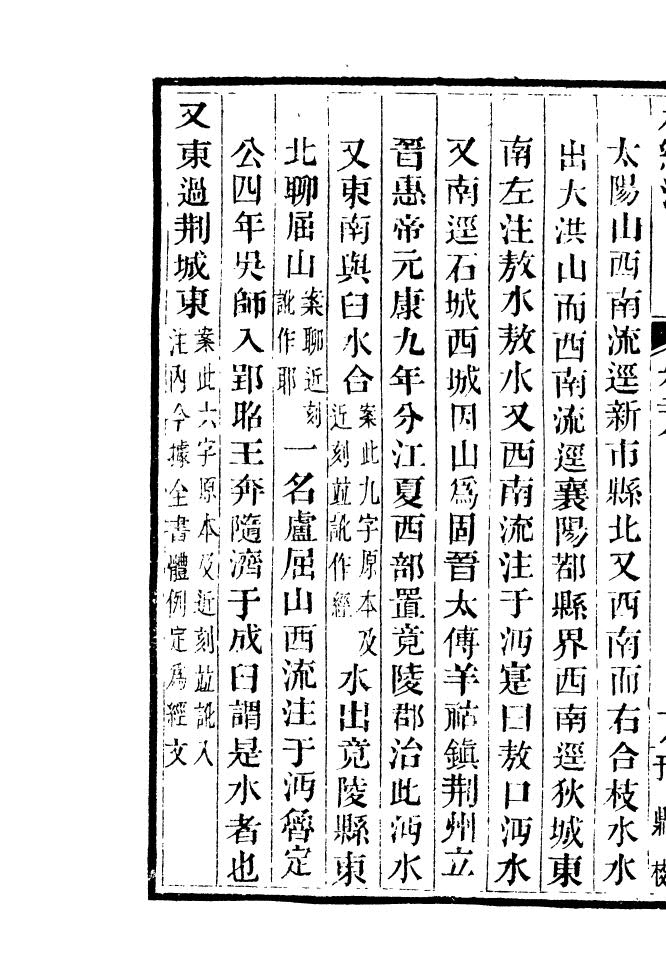 太陽山西南流逕新市縣北又西南而右合枝水水
出大洪山而西南流逕襄陽都縣界西南逕狄城東
南左注敖水敖水又西南流注于沔寔曰敖口沔水
又南逕石城西城因山爲固晉太傅羊祜鎮荆州立
晉惠帝元康九年分江夏西部置竟陵郡治此沔水
又東南與臼水合案此九字原本及近刻竝訛作經水出竟陵縣東
北聊屈山案聊近刻訛作耶一名盧屈山西流注于沔魯定
公四年吳師入郢昭王奔隨濟于成臼謂是水者也
又東過荆城東案此六字原本及近刻竝訛入注內今據全書體例定爲經文